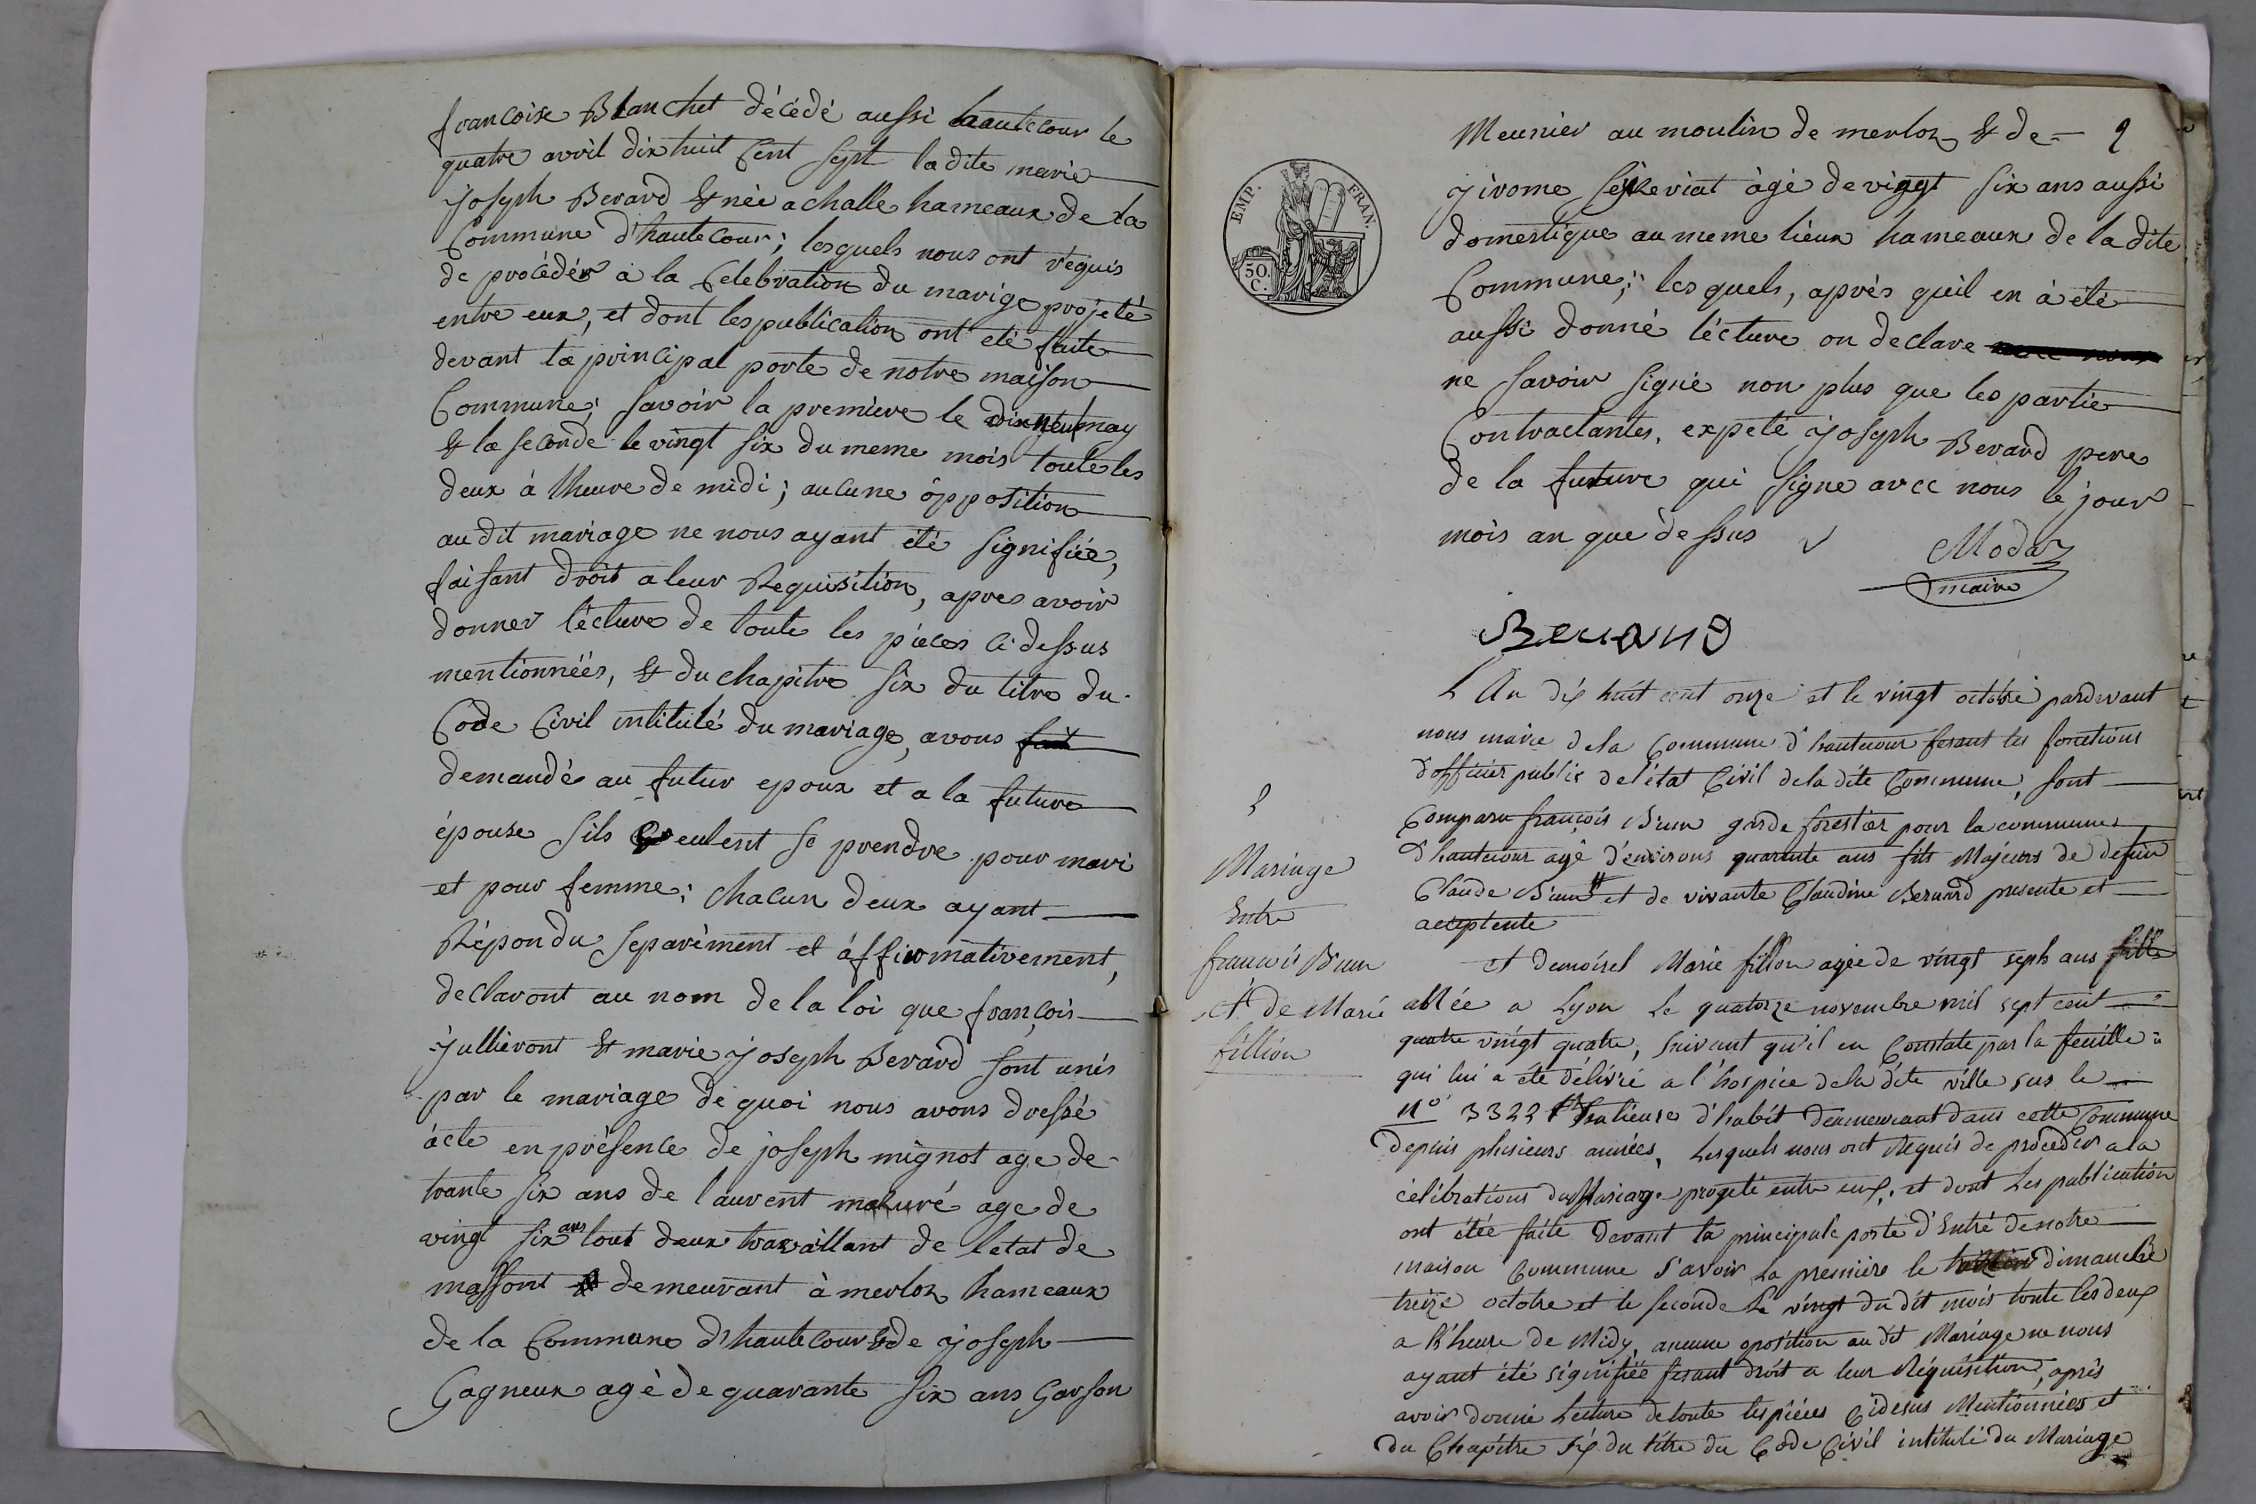 francoise Blanchet décédé aussi hautecour le
quatre avril dix huit cent sept la dite marie
joseph Berard & née a challe hameaux de la
Commune d'hautecour; lesquels nous ont réquis
de procédér à la Celebration du marige projeté
entre eux, et dont les publication ont eté faite
devant la principal porte de notre maison
Commune; savoir la premiere le dix neuf may
& la seconde le vingt six du meme mois toute les
deux à lheure de midi; aucune opposition
au dit mariage ne nous ayant été signifiée,
faisant droit a leur Requisition, apres avoir
donner lécture de toute les pièces ci dessus
mentionnéés, & du chapitre six du titre du
Code Civil intitulé du mariage, avons fait
demandé au futur epoux et a la future
épouse sils veulent se prendre pour mari
et pour femme; chacun deux ayant
Répondu separément et affirmativement,
declaront au nom de la loi que françois
jullieront & marie joseph Berard sont unis
par le mariage de quoi nous avons dressé
acte en présence de joseph mignot age de
trante six ans de laurent maluré age de
vingt six ans tout deux travaillant de letat de
massont demeurant à merloz hameaux
de la Commune d'hautecour & de joseph
Gagneux agé de quarante six ans Garson
Meunier au moulin de merloz & de 9
EMP. FRAN.
50.
C.
jirome age de vingt six ans aussi
domestique au meme lieux hameaux de la dite
Commune; les quels, aprés queil en à été
aussi donné lécture on declare
ne savoir signé non plus que les partie
Contractantes, expeté joseph Berard pere
de la future qui signe avec nous le jour
mois an que dessus
Modaz
maire
Berard
L'An dix huit cent onze et le vingt octobre pardevant
nous maire dela Commune d'hautecour fesant les fonctions
d'officier public de l'état Civil dela dite Commune, sont
Comparu françois Brun garde forestier pour la commune
d'hautecour agé d'environs quarente ans fils Majeurs de defun
Claude Brun et de vivante Claudine Berard presente et
aceptente
Mariage
Entre
francois Brun
et de Marie
fillion
et demoisel Marie fillon agée de vingt seph ans fille
ablée a Lyon le quatorze novembre mil sept cent
quatre vingt quatre, suivant qu'il en Constate par la feuille
qui lui a été délivré a l'hospice dela dite ville sus le
N° 3322 d'habit demeurant dans cette Commune
depuis plusieurs années, Lesquels nous ont Requis de procéder a la
célébrations du Mariage progeté entre eux; et dont Les publication
ont étée faite devant la principale porte d'Entré de notre
maison Commune savoir La premiere le dimanche
treize octobre et le seconde Le vingt du dit mois toute les deux
a l'heure de Midy, aucune oposition au dit Mariage ne nous
ayant été signifiée fesant droit a leur Réquisition, après
avoir donné Lecture de toute les piéces Cidesus Mentionnées et
du Chapitre six du titre du Code Civil intitulé du Mariage